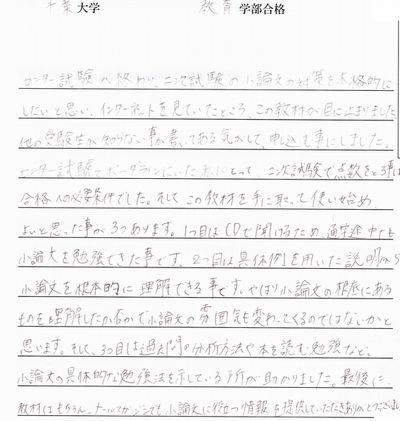 千葉大学 教育学部合格
センター試験が終わり、二次試験の小論文の対策を本格的に
したいと思い、インターネットを見ていたところ、この教材が目に止まりました
他の受験生が知らない事が書いてある気がして、申込む事にしました。
センター試験でボーダーラインにいた私にとって 二次試験で点数をとる事は
合格への必要条件でした。そしてこの教材を手に取って使い始め
よいと思った事が3つあります。1つ目はCDで聞けるため、通学途中でも
小論文を勉強できた事です。2つ目は具体例を用いた説明から
小論文を根本的に理解できる事です。やはり小論文の根底にある
ものを理解したか否かで小論文の雰囲気も変わってくるのではないかと
思います。そして、3つ目は過去問の分析方法や本を読む勉強など、
小論文の具体的な勉強法を示している所が助かりました。最後に、
教材はもちろん、メールマガジンでも小論文に役立つ情報を提供していただきありがとうござい